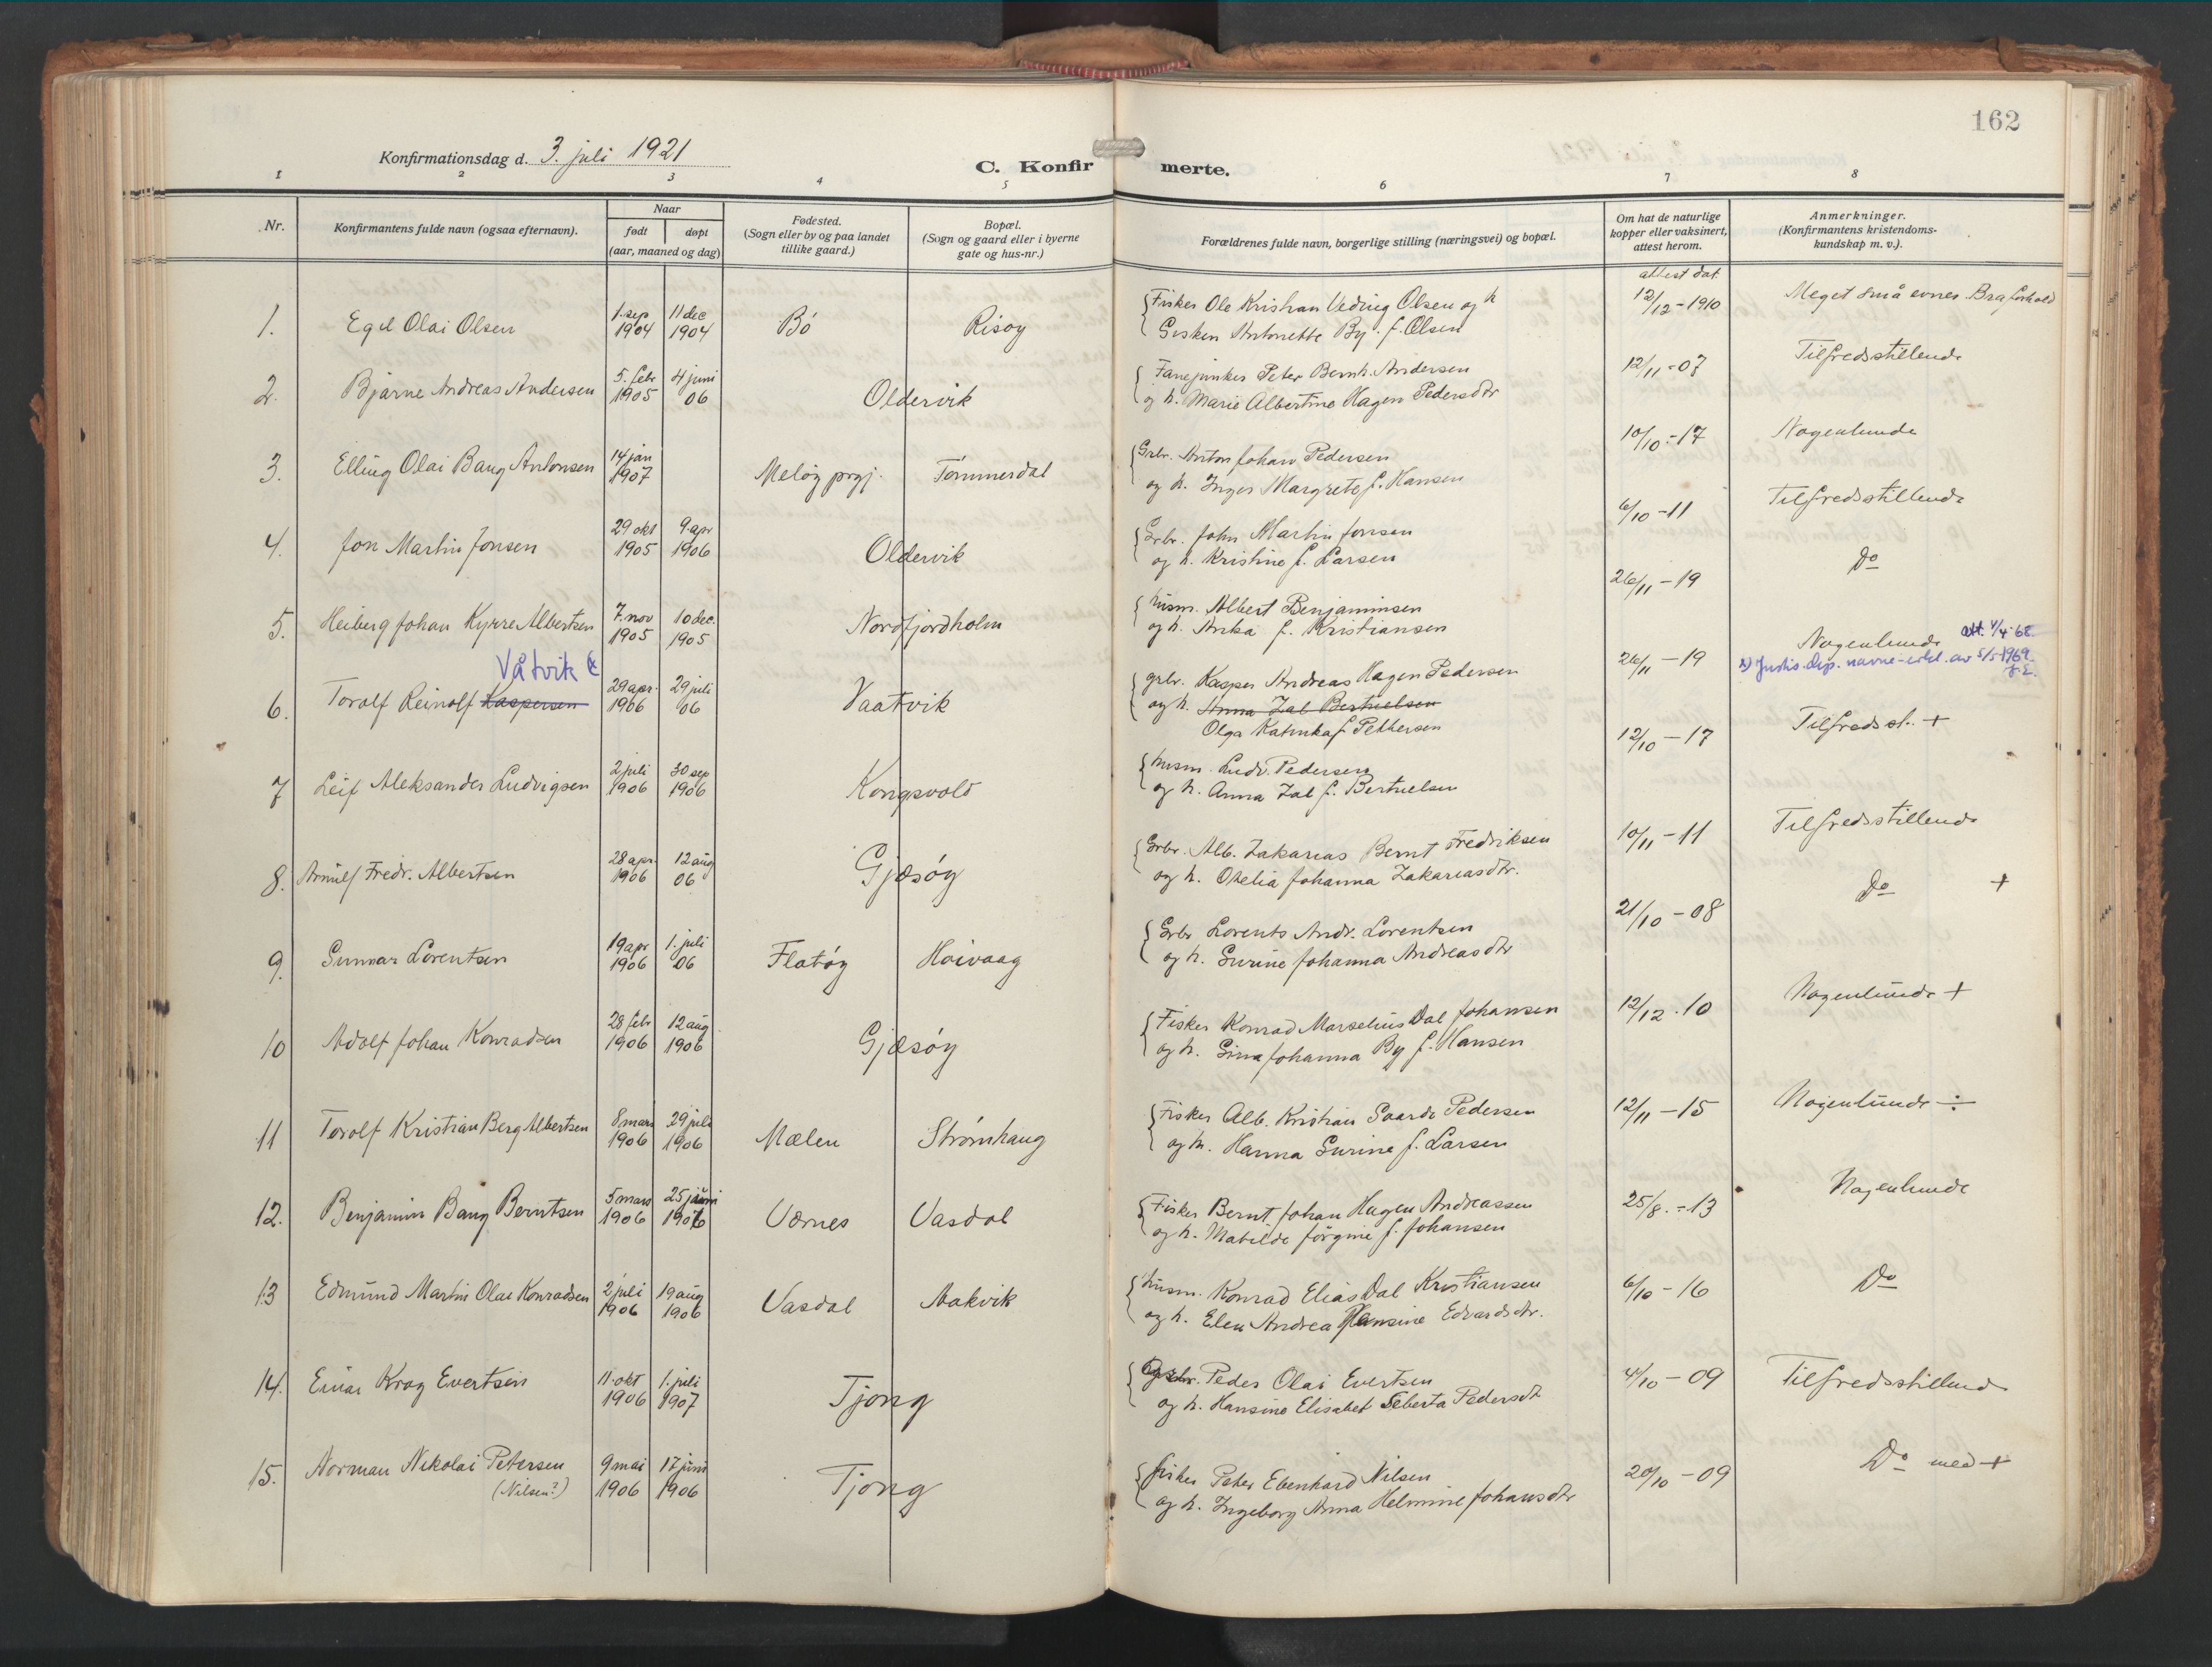 162
Konfirmationsdag d. 3. juli 1921
C. Konfirmerte.
1 2 3 4 5 6 7 8
Nr.
Konfirmantens fulde navn (ogsaa efternavn).
Naar
født døpt
(aar, maaned og dag)
Fødested.
(Sogn eller by og paa landet
tillike gaard.)
Bopæl.
(Sogn og gaard eller i byerne
gate og hus-nr.)
Forældrenes fulde navn, borgerlige stilling (næringsvei) og bopæl.
Om hat de naturlige
kopper eller vaksinert,
attest herom.
Anmerkninger.
(Konfirmantens kristendoms-
kundskap m. v.).
attest dat.
1. Egil Olai Olsen 1. sep 1904 11 dec 1904 Bö Risøy
Fisker Ole Kristian Veding Olsen og h
Gisken Antonette By f. Olsen
12/12-1910 Meget små evner. Bra forhold
2. Bjarne Andreas Andersen 5. febr 1905 4 juni 06 Oldervik
Fanejunker Peter Bernh. Andersen
og h. Marie Albertine Hagen Pedersdtr
12/11-07 Tilfredsstillende
3. Elling Olai Bang Antonsen 14 jan 1907 Meløy prgj. Tömmerdal
Grbr. Anton Johan Pedersen
og h. Inger Margrete f. Hansen
10/10-17 Nogenlunde
4. Jon Martin Jonsen 29 okt 1905 9. apr 1906 Oldervik
Grbr. John Martin Jonsen
og h. Kristine f. Larsen
6/10-11 Tilfredsstillende
5. Heiberg Johan Kyrre Albertsen 7. nov 1905 10 dec. 1905 Nordfjordholm
husm. Albert Benjaminsen
og h. Anka f. Kristiansen
26/11-19 Do
Våtvik (x
6. Torolf Reinolf Kaspersen 29 apr. 1906 29 juli 06 Vaatvik
grbr. Kasper Andreas Hagen Pedersen
og h. Anna Zal Bertielsen
Olga Katinka f Pettersen
26/11-19 Nogenlunde att. 4/4 68.
x) Justis.dep. navne-erkl. av 5/5 1969.
7 Leif Aleksander Ludvigsen 2 juli 1906 30 sep 1906 Kongsvold
husm. Ludv. Pedersen
og h. Anna Zal f. Bertielsen
12/10-17 Tilfredsst. +
8. Arnulf Fredr. Albertsen 28 apr. 1906 12 aug 06 Gjæsöy
Grbr. Alb. Zakarias Bernt Fredriksen
og h. Otelia Johanna Zakariasdtr.
10/11-11 Tilfredsstillende
9. Gunnar Lorentsen 19 apr 1906 1. juli 06 Flatöy Höivaag
Grbr Lorents Andr. Lorentsen
og h. Gurine Johanna Andreasdtr
21/10-08 Do +
10 Adolf Johan Konradsen 28 febr 1906 12 aug 1906 Gjæsöy
Fisker Konrad Marselius Dal Johansen
og h. Gina Johanna By f. Hansen
12/12.10 Nogenlunde +
11 Torolf Kristian Berg Albertsen 8 mars 1906 29 juli 1906 Mælen Strömhaug
Fisker Alb. Kristian Gaarde Pedersen
og h. Hanna Gurine f. Larsen
12/11-15 Nogenlunde ÷
12. Benjamin Bang Berntsen 5 mars 1906 25 juni 1906 Værnes Vasdal
Fisker Bernt Johan Hagen Andreassen
og h. Matilde Jörgine f. Johansen
25/8.-13 Nogenlunde
13 Edmund Martin Olai Konradsen 2 juli 1906 19 aug 1906 Vasdal Aakvik
husm. Konrad Elias Dal Kristiansen
og h. Elen Andrea Hansine Edvardsdtr.
6/10-16 Do
14. Einar Krog Evertsen 11. okt 1906 1. juli 1907 Tjong
Peder Olai Evertsen
og h. Hansine Elisabet Seberta Pedersdt
4/10-09 Tilfredsstillend
15. Norman Nikolai Petersen 9 mai 1906 17 juni 1906 Tjong
(Nilsen?)
fisker Peter Ebenhard Nilsen
og h. Ingeborg Anna Helmine Johansdtr
20/10-09 Do med +